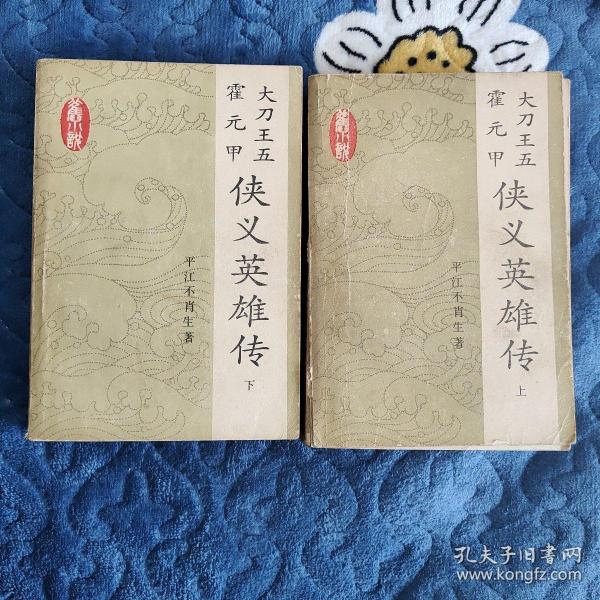 大刀王五
霍元甲
侠义英雄传
下
平江不肖生著
旧小说
大刀王五
霍元甲
侠义英雄传
上
平江不肖生著
旧小说
孔夫子旧书网
www.kongfz.com